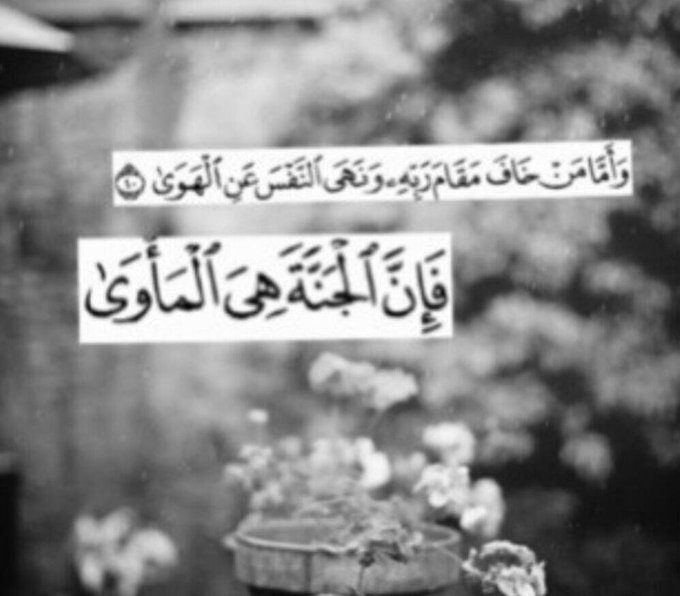 وَأَمَّا مَنْ خَافَ مَقَامَ رَبِّهِۦ وَنَهَى ٱلنَّفْسَ عَنِ ٱلْهَوَىٰ ﴿٤٠﴾
فَإِنَّ ٱلْجَنَّةَ هِىَ ٱلْمَأْوَىٰ